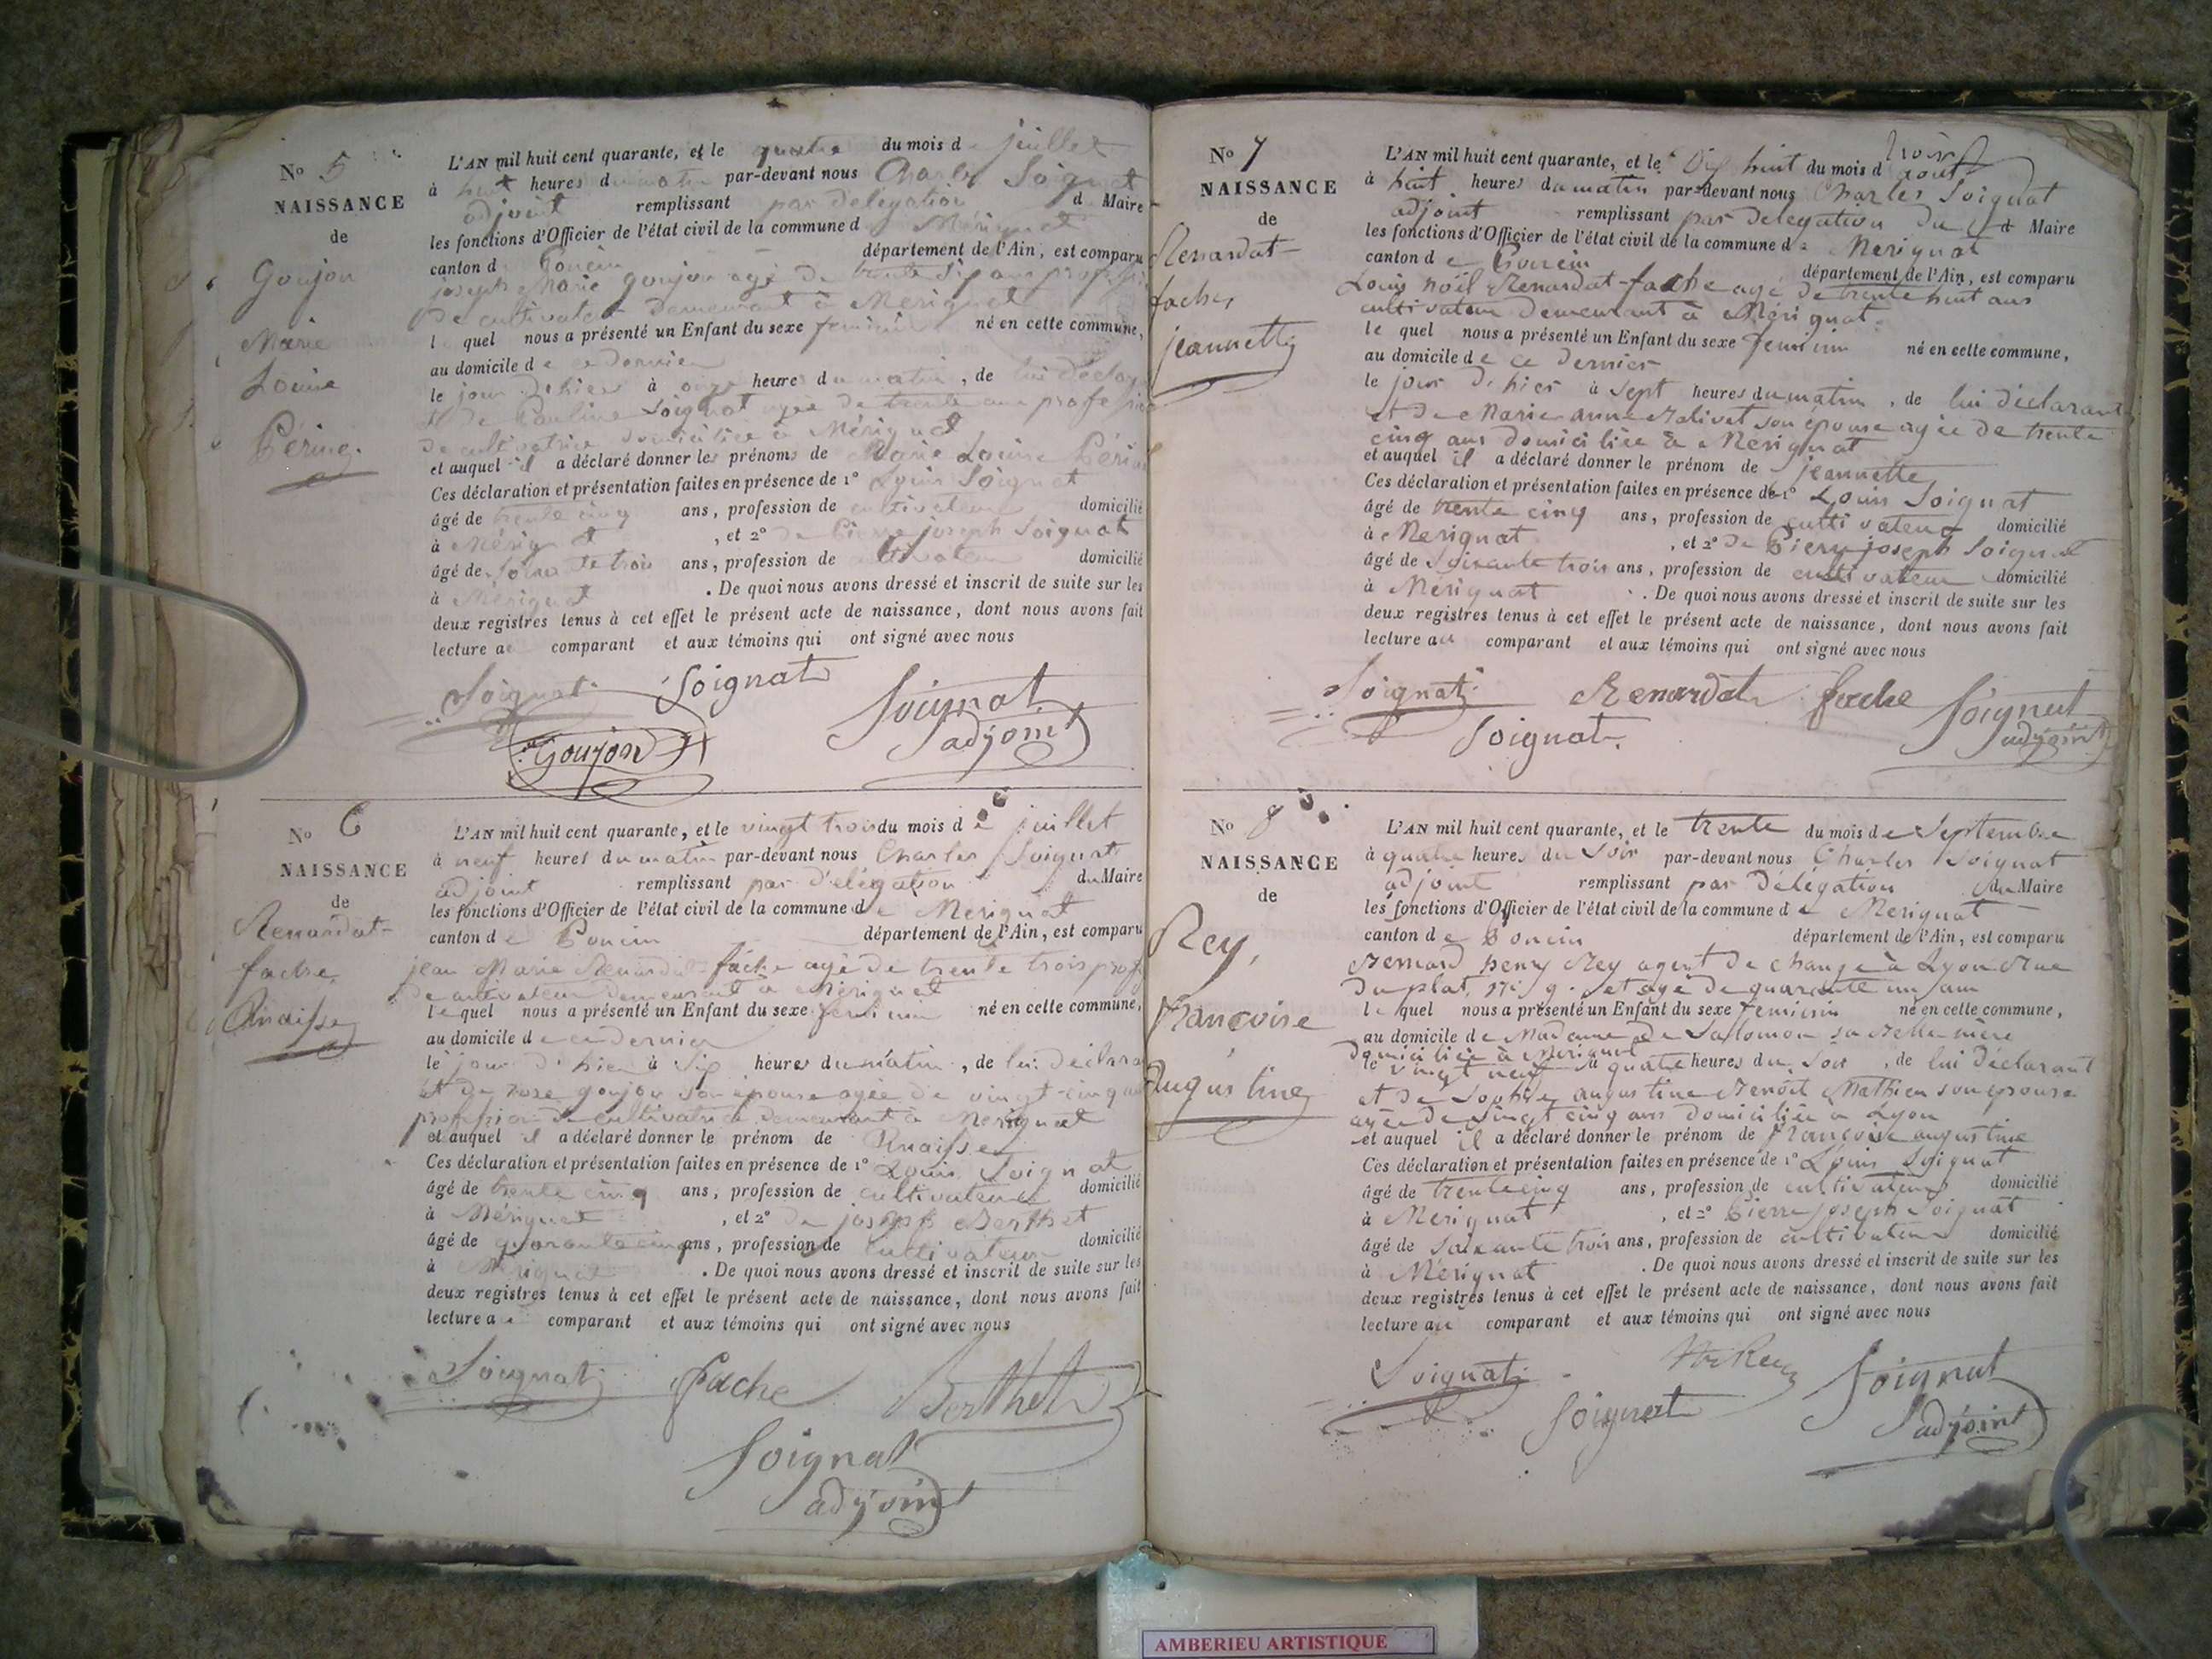 N° 5
NAISSANCE
de
Goujon
Marie
Louise
Périne.
L'AN mil huit cent quarante, et le quatre du mois d juillet
à huit heures du matin par-devant nous Charles Soignat
adjoint remplissant par délégation d Maire
les fonctions d'Officier de l'état civil de la commune d Mérignat
canton d Poncin département de l'Ain, est comparu
joseph Marie goujon agé de trente six ans profession
de cultivateur demeurant à Merignat
l quel nous a présenté un Enfant du sexe feminin né en cette commune,
au domicile de ce dernier
le jour d'hier à onze heures du matin, de lui déclarant
et de Pauline Soignat agée de trente ans profession
de cultivatrice domiciliée à Mérignat
et auquel il a déclaré donner les prénoms de Marie Louise Périne
Ces déclaration et présentation faites en présence de 1° Louis Soignat
âgé de trente cinq ans, profession de cultivateur domicilié
à Mérignat, et 2° de Pierre joseph Soignat
âgé de soixante trois ans, profession de cultivateur domicilié
à Mérignat. De quoi nous avons dressé et inscrit de suite sur les
deux registres tenus à cet effet le présent acte de naissance, dont nous avons fait
lecture au comparant et aux témoins qui ont signé avec nous
Soignat Soignat Soignat
adjoint
Goujon
N° 6
NAISSANCE
de
Renardat-
fache,
Anaisse
L'AN mil huit cent quarante, et le vingt trois du mois de juillet
à neuf heures du matin par-devant nous Charles Soignat
adjoint remplissant par d'elégation du Maire
les fonctions d'Officier de l'état civil de la commune de Merignat
canton de Poncin département de l'Ain, est comparu
jean Marie Renardat fache agé de trente trois prof
de cultivateur demeurant à Mérignat
le quel nous a présenté un Enfant du sexe feminin né en cette commune,
au domicile de ce dernier
le jour d'hier à Six heures du matin, de lui déclara
et de rose goujon son épouse agée de vingt-cinq ans
profession de cultivatrice demeurant à Merignat
et auquel il a déclaré donner le prénom de Anaisse
Ces déclaration et présentation faites en présence de 1° Louis Soignat
âgé de trente cinq ans, profession de cultivateur domicilié
à Mérignat, et 2° de joseph Berthet
âgé de quarante cinq ans, profession de cultivateur domicilié
à Mérignat. De quoi nous avons dressé et inscrit de suite sur les
deux registres tenus à cet effet le présent acte de naissance, dont nous avons fait
lecture au comparant et aux témoins qui ont signé avec nous
Soignat fache Berthet
Soignat
adjoint
N° 7
NAISSANCE
de
Renardat-
fache,
jeannette
L'AN mil huit cent quarante, et le Dix huit du mois d août
à huit heures du matin par-devant nous Charles Soignat
adjoint remplissant par délégation du Maire
les fonctions d'Officier de l'état civil de la commune de Merignat
canton de Poncin département de l'Ain, est comparu
Louis noël Renardat-fache agé de trente huit ans
cultivateur demeurant à Mérignat.
le quel nous a présenté un Enfant du sexe feminin né en cette commune,
au domicile de ce dernier
le jour d'hier à sept heures du matin, de lui déclarant
et de Marie anne Balivet son épouse agée de trente
cinq ans domiciliée à Mérignat
et auquel il a déclaré donner le prénom de jeannette
Ces déclaration et présentation faites en présence de 1° Louis Soignat
âgé de trente cinq ans, profession de cultivateur domicilié
à Merignat, et 2° de Pierre joseph Soignat
âgé de Soixante trois ans, profession de cultivateur domicilié
à Mérignat. De quoi nous avons dressé et inscrit de suite sur les
deux registres tenus à cet effet le présent acte de naissance, dont nous avons fait
lecture au comparant et aux témoins qui ont signé avec nous
Soignat Renardat fache Soignat
Soignat adjoint
N° 8
NAISSANCE
de
Rey,
Francoise
Augustine
L'AN mil huit cent quarante, et le trente du mois de Septembre
à quatre heures du soir par-devant nous Charles Soignat
adjoint remplissant par délégation du Maire
les fonctions d'Officier de l'état civil de la commune de Merignat
canton de Poncin département de l'Ain, est comparu
Bernard henry Rey agent de change à Lyon Rue
du plat, n° 9. et agé de quarante un ans
le quel nous a présenté un Enfant du sexe féminin né en cette commune,
au domicile de Madame de Salomon sa Belle mère
domiciliée à Merignat
le vingt neuf à quatre heures du soir, de lui déclarant
et de Sophie augustine Benoit Mathieu son épouse
agée de vingt cinq ans domiciliée à Lyon
et auquel il a déclaré donner le prénom de françoise augustine
Ces déclaration et présentation faites en présence de 1° Louis Soignat
âgé de trente cinq ans, profession de cultivateur domicilié
à Merignat, et 2° Pierre joseph Soignat
âgé de soixante trois ans, profession de cultivateur domicilié
à Mérignat. De quoi nous avons dressé et inscrit de suite sur les
deux registres tenus à cet effet le présent acte de naissance, dont nous avons fait
lecture au comparant et aux témoins qui ont signé avec nous
Soignat Rey Soignat
Soignat adjoint
AMBERIEU ARTISTIQUE